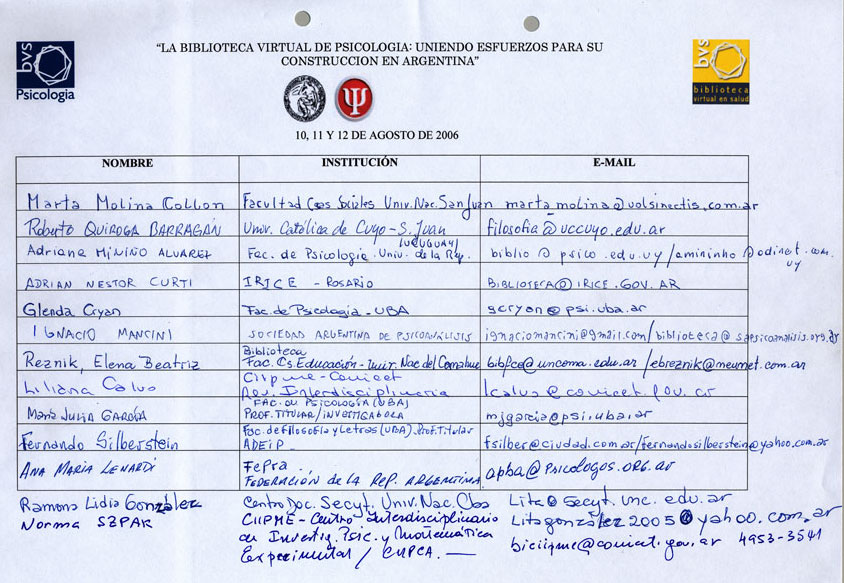 bvs
Psicología
"LA BIBLIOTECA VIRTUAL DE PSICOLOGIA: UNIENDO ESFUERZOS PARA SU
CONSTRUCCION EN ARGENTINA"
10, 11 Y 12 DE AGOSTO DE 2006
bvs
biblioteca
virtual en salud
NOMBRE INSTITUCIÓN E-MAIL
Marta Molina Collon Facultad Cs Sociales Univ. Nac. San Juan marta_molina@uolsinectis.com.ar
Roberto QUIROGA BARRAGÁN Univ. Católica de Cuyo - S. Juan filosofia@uccuyo.edu.ar
Adriana MIÑIÑO ALVAREZ Fac. de Psicología. Univ. de la Rep. (URUGUAY) biblio@psico.edu.uy/amininho@adinet.com.uy
ADRIAN NESTOR CURTI IRICE - ROSARIO BIBLIOTECA@IRICE.GOV.AR
Glenda Cryan Fac. de Psicología - UBA gcryan@psi.uba.ar
IGNACIO MANCINI SOCIEDAD ARGENTINA DE PSICOANÁLISIS ignaciomancini@gmail.com/biblioteca@sapsicoanalisis.org.ar
Reznik, Elena Beatriz Biblioteca
Fac. Cs. Educación - Univ. Nac del Comahue bibfce@uncoma.edu.ar/ebreznik@neunet.com.ar
Liliana Calvo Ciipme - Conicet
Rev. Interdisciplinaria lcalvo@conicet.gov.ar
María Julia GARCÍA FAC. de PSICOLOGÍA (UBA)
PROF. TITULAR/INVESTIGADORA mjgarcia@psi.uba.ar
Fernando Silberstein Fac. de Filosofía y Letras (UBA) Prof. Titular
ADEIP fsilber@ciudad.com.ar/fernandosilberstein@yahoo.com.ar
ANA MARIA LENARDI FePra
FEDERACIÓN DE LA REP. ARGENTINA apba@PSICOLOGOS.ORG.ar
Ramona Lidia González Centro Doc. Secyt. Univ. Nac. Cba Lita@secyt.unc.edu.ar
Norma SZPAK CIIPME - Centro Interdisciplinario Litagonzález2005@yahoo.com.ar
en Investig. Psic. y Matemática biciipme@conicet.gov.ar 4953-3541
Experimental /